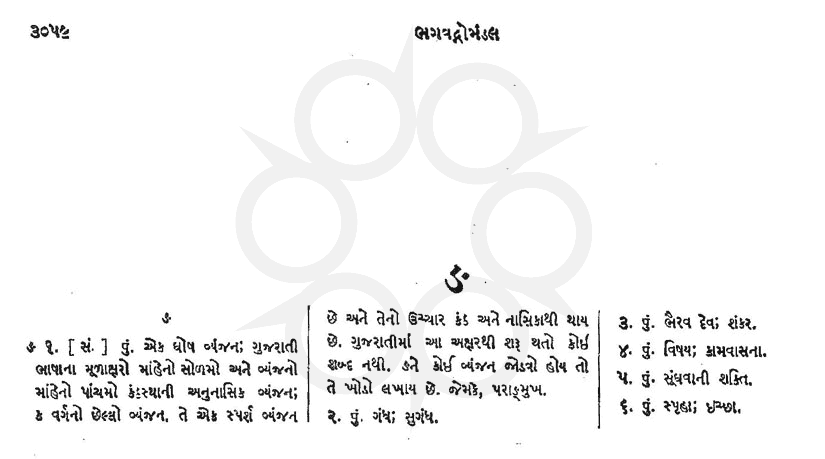 ૩૦૫૯
ભગવદ્ગોમંડલ
ઙ
ઙ
ઙ ૧. [ સં. ] પું. એક ઘોષ વ્યંજન; ગુજરાતી
ભાષાના મૂળાક્ષરો માંહેનો સોળમો અને વ્યંજનો
માંહેનો પાંચમો કંઠસ્થાની અનુનાસિક વ્યંજન;
ક વર્ગનો છેલ્લો વ્યંજન. તે એક સ્પર્શ વ્યંજન
છે અને તેનો ઉચ્ચાર કંઠ અને નાસિકાથી થાય
છે. ગુજરાતીમાં આ અક્ષરથી શરૂ થતો કોઈ
શબ્દ નથી. ઙને કોઈ વ્યંજન જોડવો હોય તો
તે ખોડો લખાય છે. જેમકે, પરાઙ્મુખ.
૨. પું. ગંધ; સુગંધ.
૩. પું. ભૈરવ દેવ; શંકર.
૪. પું. વિષય; કામવાસના.
૫. પું. સૂંઘવાની શક્તિ.
૬. પું. સ્પૃહા; ઇચ્છા.